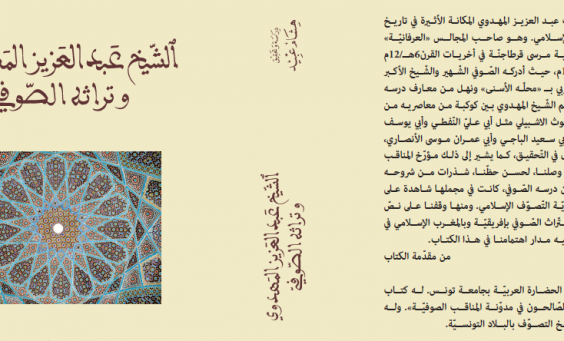 الشّيخ عبد العزيز الم
وتراثه الصّوفي
دراسة وتحقيق
هشام عبيد
الشيخ عبد العزيز المهدوي
وتراثه الصّوفي
عبد العزيز المهدوي المكانة الأثيرة في تاريخ
الإسلامي. وهو صاحب المجالس «العرفانيّة»
مرسى قرطاجنّة في أخريات القرن6هـ/12م
م، حيث أدركه الصّوفي الشّهير والشّيخ الأكبر
بـ «محلّه الأسنى» ونهل من معارف درسه
الشّيخ المهدوي بين كوكبة من معاصريه من
الاشبيلي مثل أبي عليّ النّفطي وأبي يوسف
بي سعيد الباجي وأبي عمران موسى الأنصاري،
في التّحقيق، كما يشير إلى ذلك مؤرّخ المناقب
وصلنا، لحسن حظّنا، شذرات من شروحه
درسه الصّوفي، كانت في مجملها شاهدة على
التّصوّف الإسلامي. ومنها وقفنا على نصّ
الصّوفي بإفريقيّة وبالمغرب الإسلامي في
مدار اهتمامنا في هذا الكتاب.
من مقدّمة الكتاب
الحضارة العربيّة بجامعة تونس. له كتاب
الصّالحون في مدوّنة المناقب الصوفيّة». وله
خ التصوّف بالبلاد التونسيّة.